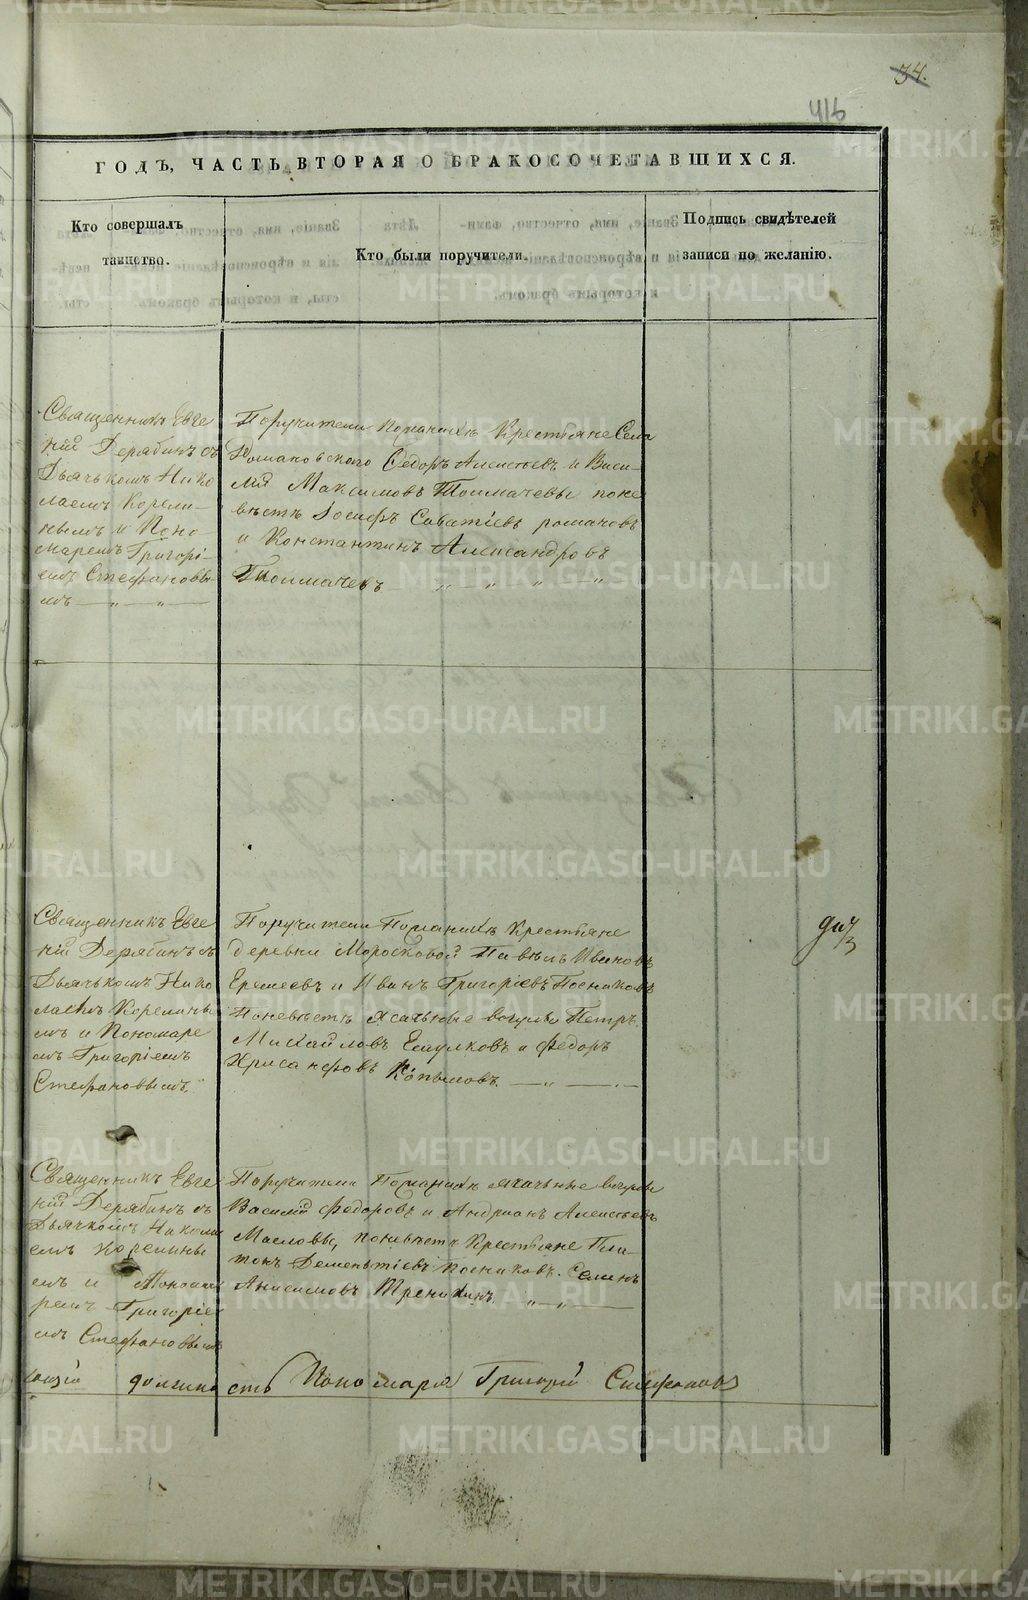 34.
416
ГОДЪ, ЧАСТЬ ВТОРАЯ О БРАКОСОЧЕТАВШИХСЯ.
Кто совершалъ
таинство.
Кто были поручители.
Подпись свидѣтелей
записи по желанію.
Священникъ Евге
ній Дерябинъ съ
Дьячькомъ Нико
лаемъ Корели-
нымъ и Поно
маремъ Григорі-
емъ Стефановы-
мъ — „ — „ —
Поручители по женихѣ Крестьяне Села
Романовскаго Ѳедоръ Алексѣевъ и Васи-
лій Максимовъ Толмачевы по не
вѣстѣ Іосифъ Саватіевъ
и Константинъ Александровъ
Толмачевъ — „ — „ „ — „
Священникъ Евге
ній Дерябинъ съ
Дьячькомъ Нико
лаемъ Корелины
мъ и Пономаре
мъ Григоріемъ
Стефановымъ.
Поручители По женихѣ Крестьяне
деревни Морозковой Павелъ Ивановъ
Еремеевъ и Иванъ Григоріевъ Посниковъ
По невѣстѣ ясачьные вогулы Петръ
Михайловъ Емулковъ и Федоръ
Хрисанфовъ Копыловъ. — „ —
дич/3
Священникъ Евге
ній Дерябинъ съ
Дьячкомъ Никола
емъ Корелины
мъ и Поно ма
ремъ Григоріе
мъ Стефановымъ
Поручители По женихѣ ясачьные вогулы
Василій Федоровъ и Андріанъ Алексѣевъ
Масловы, по невѣстѣ Крестьяне Пла-
тонъ Дементіевъ Посниковъ. Семенъ
Анисимовъ Тренихинъ. „ — „ —
ющій должность Пономаря Григорій Стефановъ
METRIKI.GASO-URAL.RU